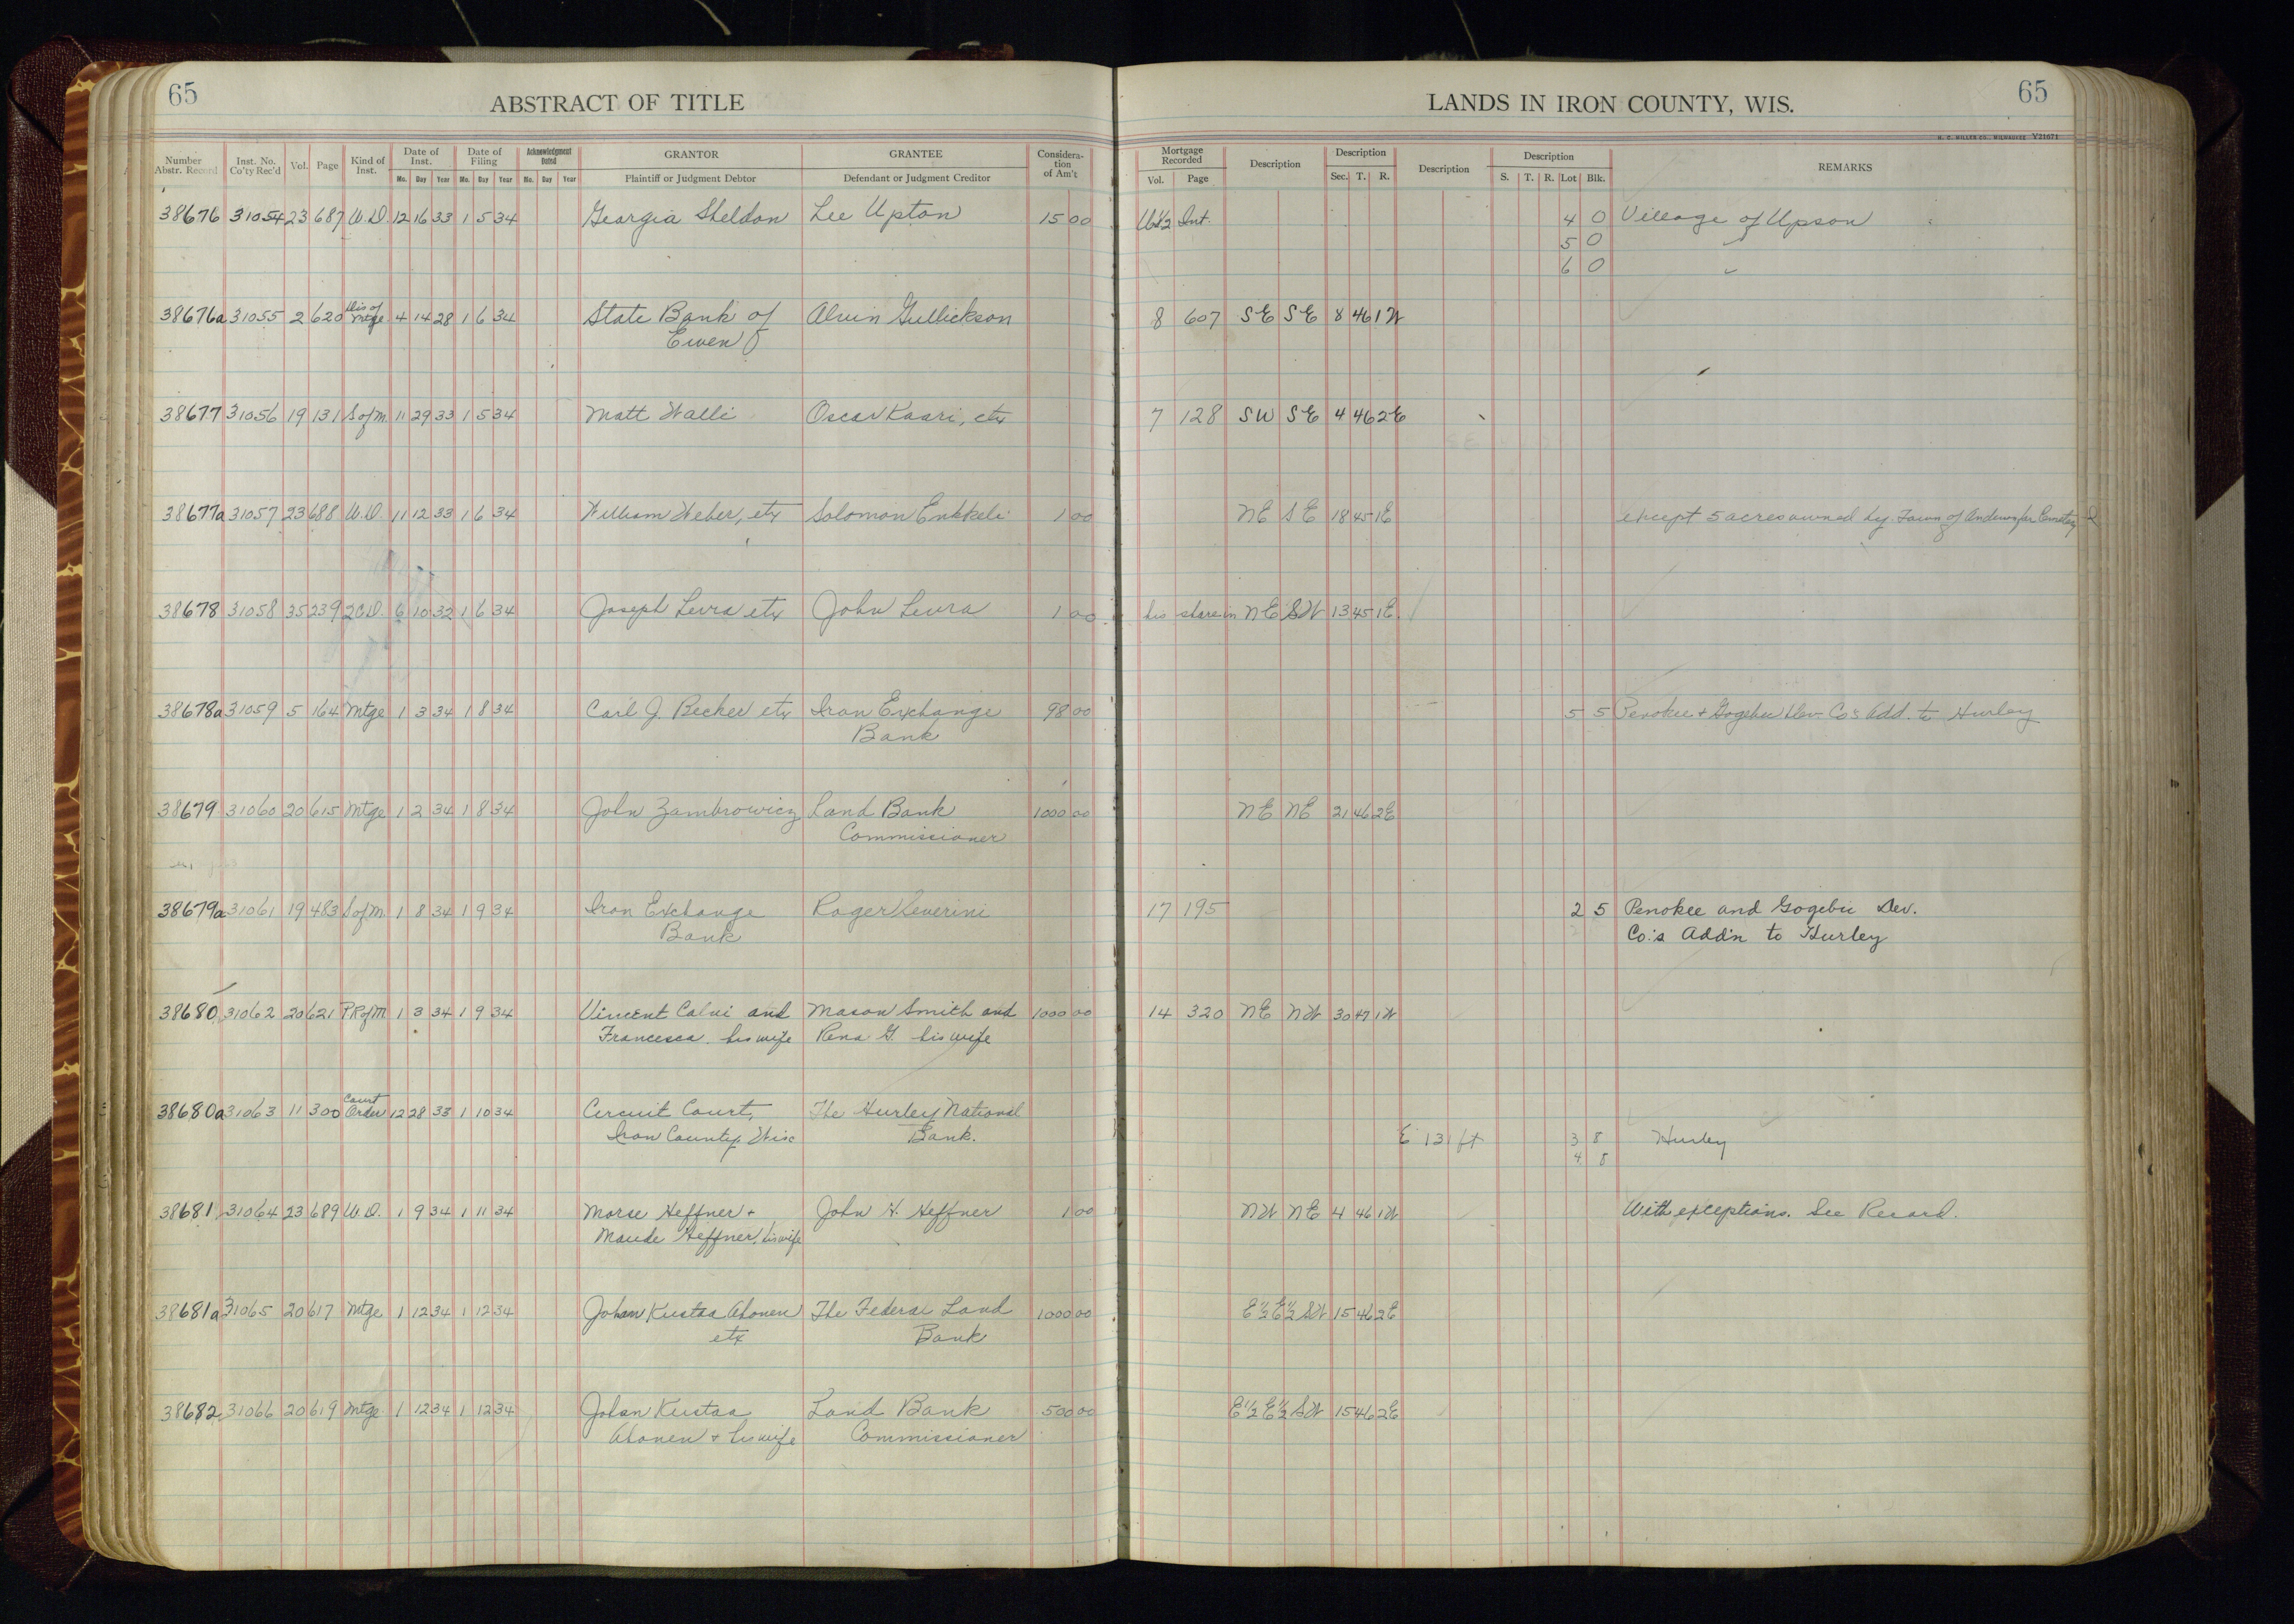 65
ABSTRACT OF TITLE
LANDS IN IRON COUNTY, WIS.
65
H. C. MILLER CO., MILWAUKEE Y21671
Number Abstr. Record | Inst. No. Co'ty Rec'd | Vol. | Page | Kind of Inst. | Date of Inst. Mo. Day Year | Date of Filing Mo. Day Year | Acknowledgment Dated Mo. Day Year | GRANTOR Plaintiff or Judgment Debtor | GRANTEE Defendant or Judgment Creditor | Consideration of Am't | Mortgage Recorded Vol. Page | Description | Description Sec. T. R. | Description | Description S. T. R. Lot Blk. | REMARKS
38676 31054 23 687 W.D. 12 16 33 1 5 34 Georgia Sheldon Lee Upton 15 00 Int. 4 0 Village of Upson
5 0 "
6 0 "
38676a 31055 2 620 Dis of Mtge 4 14 28 1 6 34 State Bank of Alvin Gullickson 8 607 SE SE 8 46 1W
Ewen
38677 31056 19 131 S of M. 11 29 33 1 5 34 Matt Walli Oscar Kaari, etx 7 128 SW SE 4 46 2E
38677a 31057 23 688 W.D. 11 12 33 1 6 34 William Weber, etx Solomon 1 00 NE SE 18 45 1E except 5 acres owned by Town of Anderson for Cemetery
38678 31058 35 239 2CD. 6 10 32 1 6 34 Joseph Levra etx John Levra 1 00 his share in NE SW 13 45 1E
38678a 31059 5 164 Mtge 1 3 34 1 8 34 Carl J. Becker etx Iron Exchange 98 00 5 5 Penokee + Gogebic Dev Co's Add. to Hurley
Bank
38679 31060 20 615 Mtge 1 2 34 1 8 34 John Zambrowicz Land Bank 1000 00 NE NE 21 46 2E
Commissioner
38679a 31061 19 483 S of M. 1 8 34 1 9 34 Iron Exchange Roger Severini 17 195 2 5 Penokee and Gogebic Dev.
Bank Co.'s Add'n to Hurley
38680 31062 20 621 P.R of M 1 3 34 1 9 34 Vincent Calvi and Mason Smith and 1000 00 14 320 NE NW 30 47 1W
Francesca his wife Rena G. his wife
38680a 31063 11 300 Court Order 12 28 33 1 10 34 Circuit Court, The Hurley National
Iron County, Wisc Bank. E 131 ft 3 8 Hurley
4 8
38681 31064 23 689 W.D. 1 9 34 1 11 34 Morse Heffner + John H. Heffner 1 00 NW NE 4 46 1W With exceptions. See Record.
Maude Heffner, his wife
38681a 31065 20 617 Mtge 1 12 34 1 12 34 Johan Kustaa Ahonen The Federal Land 1000 00 E½ E½ SW 15 46 2E
etx Bank
38682 31066 20 619 Mtge 1 12 34 1 12 34 Johan Kustaa Land Bank 500 00 E½ E½ SW 15 46 2E
Ahonen + his wife Commissioner